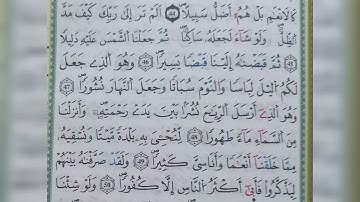 كَالَانْعَٰمِ بَلْ هُمُۥٓ أَضَلُّ سَبِيلًا ﴿44﴾ أَلَمْ تَرَ إِلَىٰ رَبِّكَ كَيْفَ مَدَّ
اَ۬لظِّلَّ وَلَوْ شَآءَ لَجَعَلَهُۥ سَاكِنًا ثُمَّ جَعَلْنَا اَ۬لشَّمْسَ عَلَيْهِ دَلِيلًا
﴿45﴾ ثُمَّ قَبَضْنَٰهُ إِلَيْنَا قَبْضًا يَسِيرًا ﴿46﴾ وَهُوَ اَ۬لذِے جَعَلَ
لَكُمُ اُ۬ليْلَ لِبَاسًا وَالنَّوْمَ سُبَاتًا وَجَعَلَ اَ۬لنَّهَارَ نُشُورًا ﴿47﴾
وَهُوَ اَ۬لذِےٓ أَرْسَلَ اَ۬لرِّيَٰحَ نُشُرًا بَيْنَ يَدَےْ رَحْمَتِهِۦ وَأَنزَلْنَا
مِنَ اَ۬لسَّمَآءِ مَآءً طَهُورًا ﴿48﴾ لِّنُحْـِۧيَ بِهِۦ بَلْدَةً مَّيْتًا وَنُسْقِيَهُۥ
مِمَّا خَلَقْنَآ أَنْعَٰمًا وَأَنَاسِيَّ كَثِيرًا ﴿49﴾ وَلَقَدْ صَرَّفْنَٰهُ بَيْنَهُمْ
لِيَذَّكَّرُواْ فَأَبَىٰٓ أَكْثَرُ اُ۬لنَّاسِ إِلَّا كُفُورًا ﴿50﴾ وَلَوْ شِئْنَا